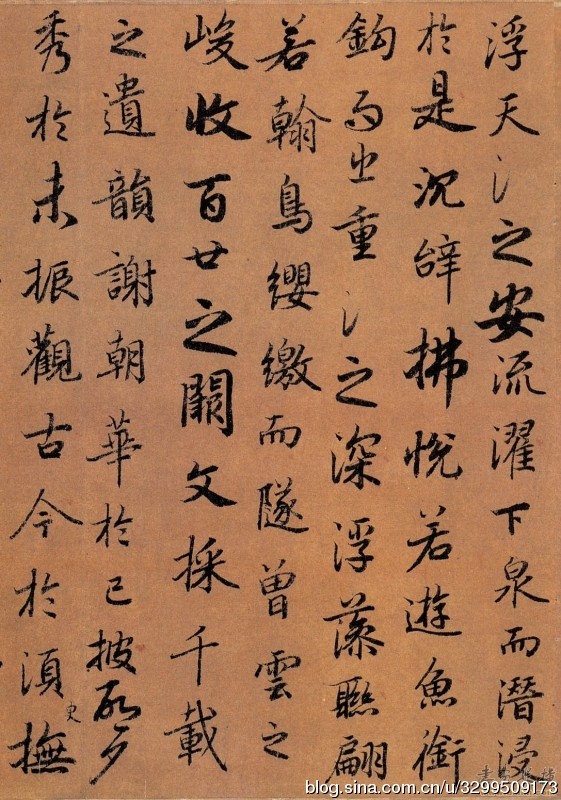 浮天氵之安流濯下泉而潛浸
於是沉辝拂悅若遊魚銜
鈎而出重氵之深浮藻聮翩
若翰鳥纓繳而隧曾雲之
峻收百世之闕文採千載
之遺韻謝朝華於已披啓夕
秀於未振觀古今於須臾撫
blog.sina.com.cn/u/3299509173